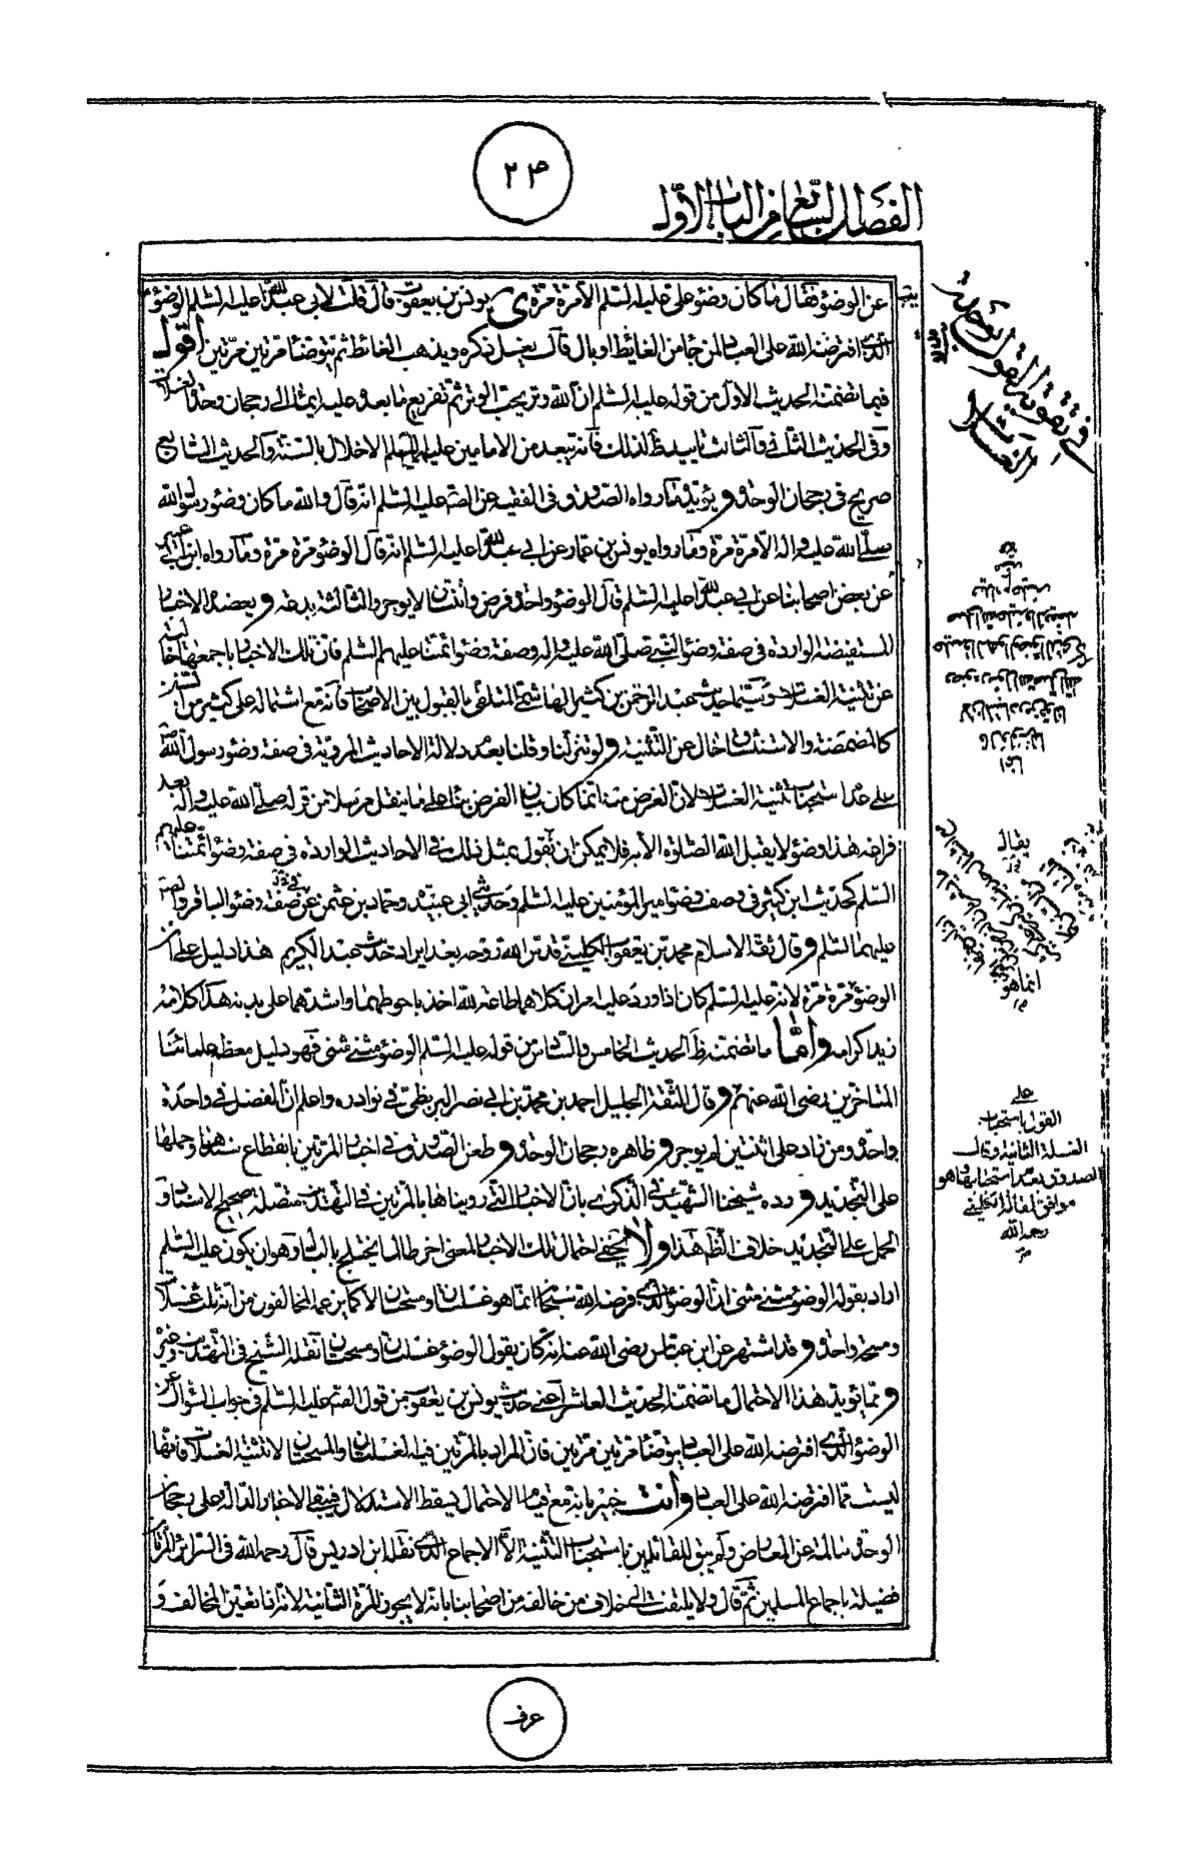 ٢٤
الفصل السابع من الباب الأوّل
عن الوضوء فقال ما كان وضوء علي عليه السلم الا مرة مرة ى يب يونس بن يعقوب قال قلت لابي عبد الله عليه السلم الوضوء
الذي افترضه الله على العباد لمن جاء من الغائط او بال قال يغسل ذكره ويذهب الغائط ثم يتوضأ مرتين مرتين اقول
فيما تضمنه الحديث الاول من قوله عليه السلم ان الله وتر يحب الوتر ثم تفريع ما بعده عليه ايماء الى رجحان وحدة الغسلات
وفي الحديث الثاني والثالث تاييد ظ لذلك فانه يبعد من الامامين عليهما السلم الاخلال بالسنة والحديث السابع
صريح في رجحان الوحدة ويؤيده ما رواه الصدوق في الفقيه عن الصادق عليه السلم انه قال والله ما كان وضوء رسول الله
صلى الله عليه واله الا مرة مرة وما رواه يونس بن عمار عن ابي عبد الله عليه السلم انه قال الوضوء مرة مرة وما رواه ابن ابي عمير
عن بعض اصحابنا عن ابي عبد الله عليه السلم قال الوضوء واحدة فرض واثنتان لا يوجر والثالثة بدعة ويعضده الاخبار
المستفيضة الواردة في صفة وضوء النبي صلى الله عليه واله وصفة وضوء ائمتنا عليهم السلم فان تلك الاخبار باجمعها خالية
عن تثنية الغسلات وسيما حديث عبد الرحمن بن كثير الهاشمي المتلقى بالقبول بين الاصحاب فانه مع اشتماله على كثير من السنن
كالمضمضة والاستنشاق خال عن التثنية ولو تنزلنا وقلنا بعدم دلالة الاحاديث المروية في صفة وضوء رسول الله صلى
على عدم استحباب تثنية الغسلات لان الغرض منه انما كان بيان الفرض بناء على ما ينقل مرسلا من قوله صلى الله عليه واله بعد
فراغه هذا وضوء لا يقبل الله الصلوة الا به فلا يمكن ان نقول بمثل ذلك في الاحاديث الواردة في صفة وضوء ائمتنا عليهم
السلم كحديث ابن كثير في وصف وضوء امير المؤمنين عليه السلم وحديثي ابي عبيدة وحماد بن عثمن عن صفة وضوء الباقر والصادق
عليهما السلم وقال ثقة الاسلام محمد بن يعقوب الكليني قدس الله روحه بعد ايراد حديث عبد الكريم هذا دليل على ان
الوضوء مرة مرة لانه عليه السلم كان اذا ورد عليه امران كلاهما طاعة لله اخذ باحوطهما واشدهما على بدنه هذا كلامه
زيد اكرامه واما ما تضمنه ظ الحديث الخامس والثامن من قوله عليه السلم الوضوء مثنى مثنى فهو دليل معظم علمائنا
المتاخرين رضي الله عنهم وقال الثقة الجليل احمد بن محمد بن ابي نصر البزنطي في نوادره واعلم ان الفضل في واحدة
واحدة ومن زاد على اثنتين لم يوجر وظاهره رجحان الوحدة وطعن الصدوق في اخبار المرتين بانقطاع سندها وحملها
على التجديد ورده شيخنا الشهيد في الذكرى بان الاخبار التي رويناها بالمرتين في التهذيب متصلة صحيحة الاسناد و
الحمل على التجديد خلاف الظ هذا ولا يخفى احتمال تلك الاخبار لمعنى اخر طالما يختلج بالبال وهو ان يكون عليه السلم
اراد بقوله الوضوء مثنى مثنى ان الوضوء الذي فرضه الله سبحانه انما هو غسلتان ومسحتان لا كما يزعمه المخالفون من انه ثلث غسلات
ومسحة واحدة وقد اشتهر عن ابن عباس رضي الله عنه انه كان يقول الوضوء غسلتان ومسحتان نقله الشيخ في التهذيب وغيره
ومما يؤيد هذا الاحتمال ما تضمنه الحديث العاشر اعني حديث يونس بن يعقوب من قول الصادق عليه السلم في جواب السؤال عن
الوضوء الذي افترضه الله على العباد يتوضأ مرتين مرتين فان المراد بالمرتين فيه الغسلتان والمسحتان لا تثنية الغسلات فانها
ليست مما افترضه الله على العباد وانت خبير بانه مع قيام الاحتمال يسقط الاستدلال فيبقى الاخبار الدالة على رجحان
الوحدة سالمة عن المعارض ولم يبق للقائلين باستحباب التثنية الا الاجماع الذي نقله ابن ادريس قال رحمه الله في السرائر المرتان
فضيلة باجماع المسلمين ثم قال ولا يلتفت الى خلاف من خالف من اصحابنا بانه لا يجوز المرة الثانية لانه اذا تعين المخالف و
في تقوية القول بوحدة
الغسلات
يقال
انما هو
على
القول باستحباب
الغسلة الثانية وقال
الصدوق بعدم استحبابها هو
موافق لما قاله الكليني
رحمه الله
عرف